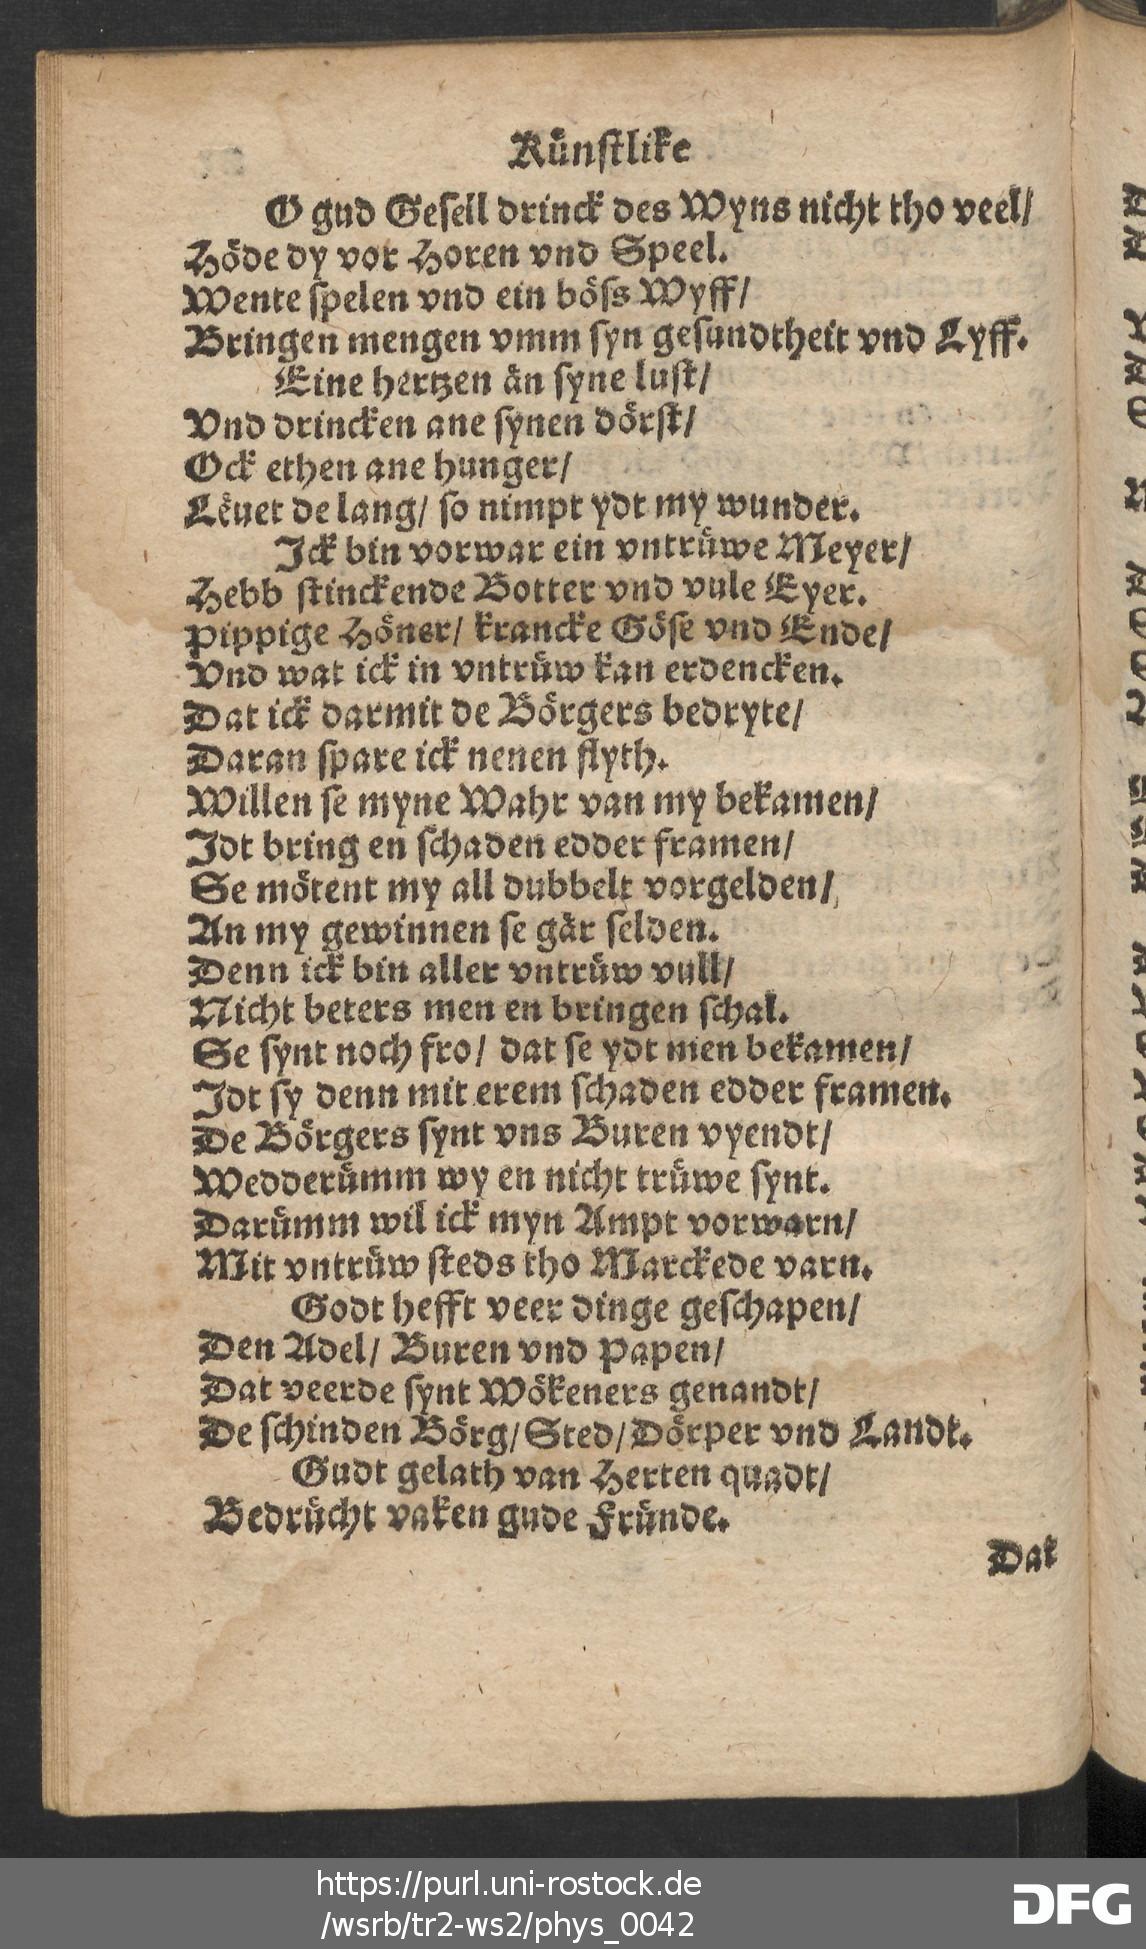 Künstlike
O gud Gesell drinck des Wyns nicht tho veel/
Höde dy vor Horen vnd Speel.
Wente spelen vnd ein böss Wyff/
Bringen mengen vmm syn gesundtheit vnd Lyff.
Eine hertzen än syne lust/
Vnd drincken ane synen dörst/
Ock ethen ane hunger/
Lëuet de lang/ so nimpt ydt my wunder.
Jck bin vorwar ein vntrüwe Meyer/
Hebb stinckende Botter vnd vule Eyer.
Pippige Höner/ krancke Göse vnd Ende/
Vnd wat ick in vntrüw kan erdencken.
Dat ick darmit de Börgers bedryte/
Daran spare ick nenen flyth.
Willen se myne Wahr van my bekamen/
Jdt bring en schaden edder framen/
Se mötent my all dubbelt vorgelden/
An my gewinnen se gär selden.
Denn ick bin aller vntrüw vull/
Nicht beters men en bringen schal.
Se synt noch fro/ dat se ydt men bekamen/
Jdt sy denn mit erem schaden edder framen.
De Börgers synt vns Buren vyendt/
Wedderümm wy en nicht trüwe synt.
Darümm wil ick myn Ampt vorwarn/
Mit vntrüw steds tho Marckede varn.
Godt hefft veer dinge geschapen/
Den Adel/ Buren vnd Papen/
Dat veerde synt Wökeners genandt/
De schinden Börg/ Sted/ Dörper vnd Landt.
Gudt gelath van Herten quadt/
Bedrücht vaken gude Fründe.
Dat
https://purl.uni-rostock.de
/wsrb/tr2-ws2/phys_0042
DFG